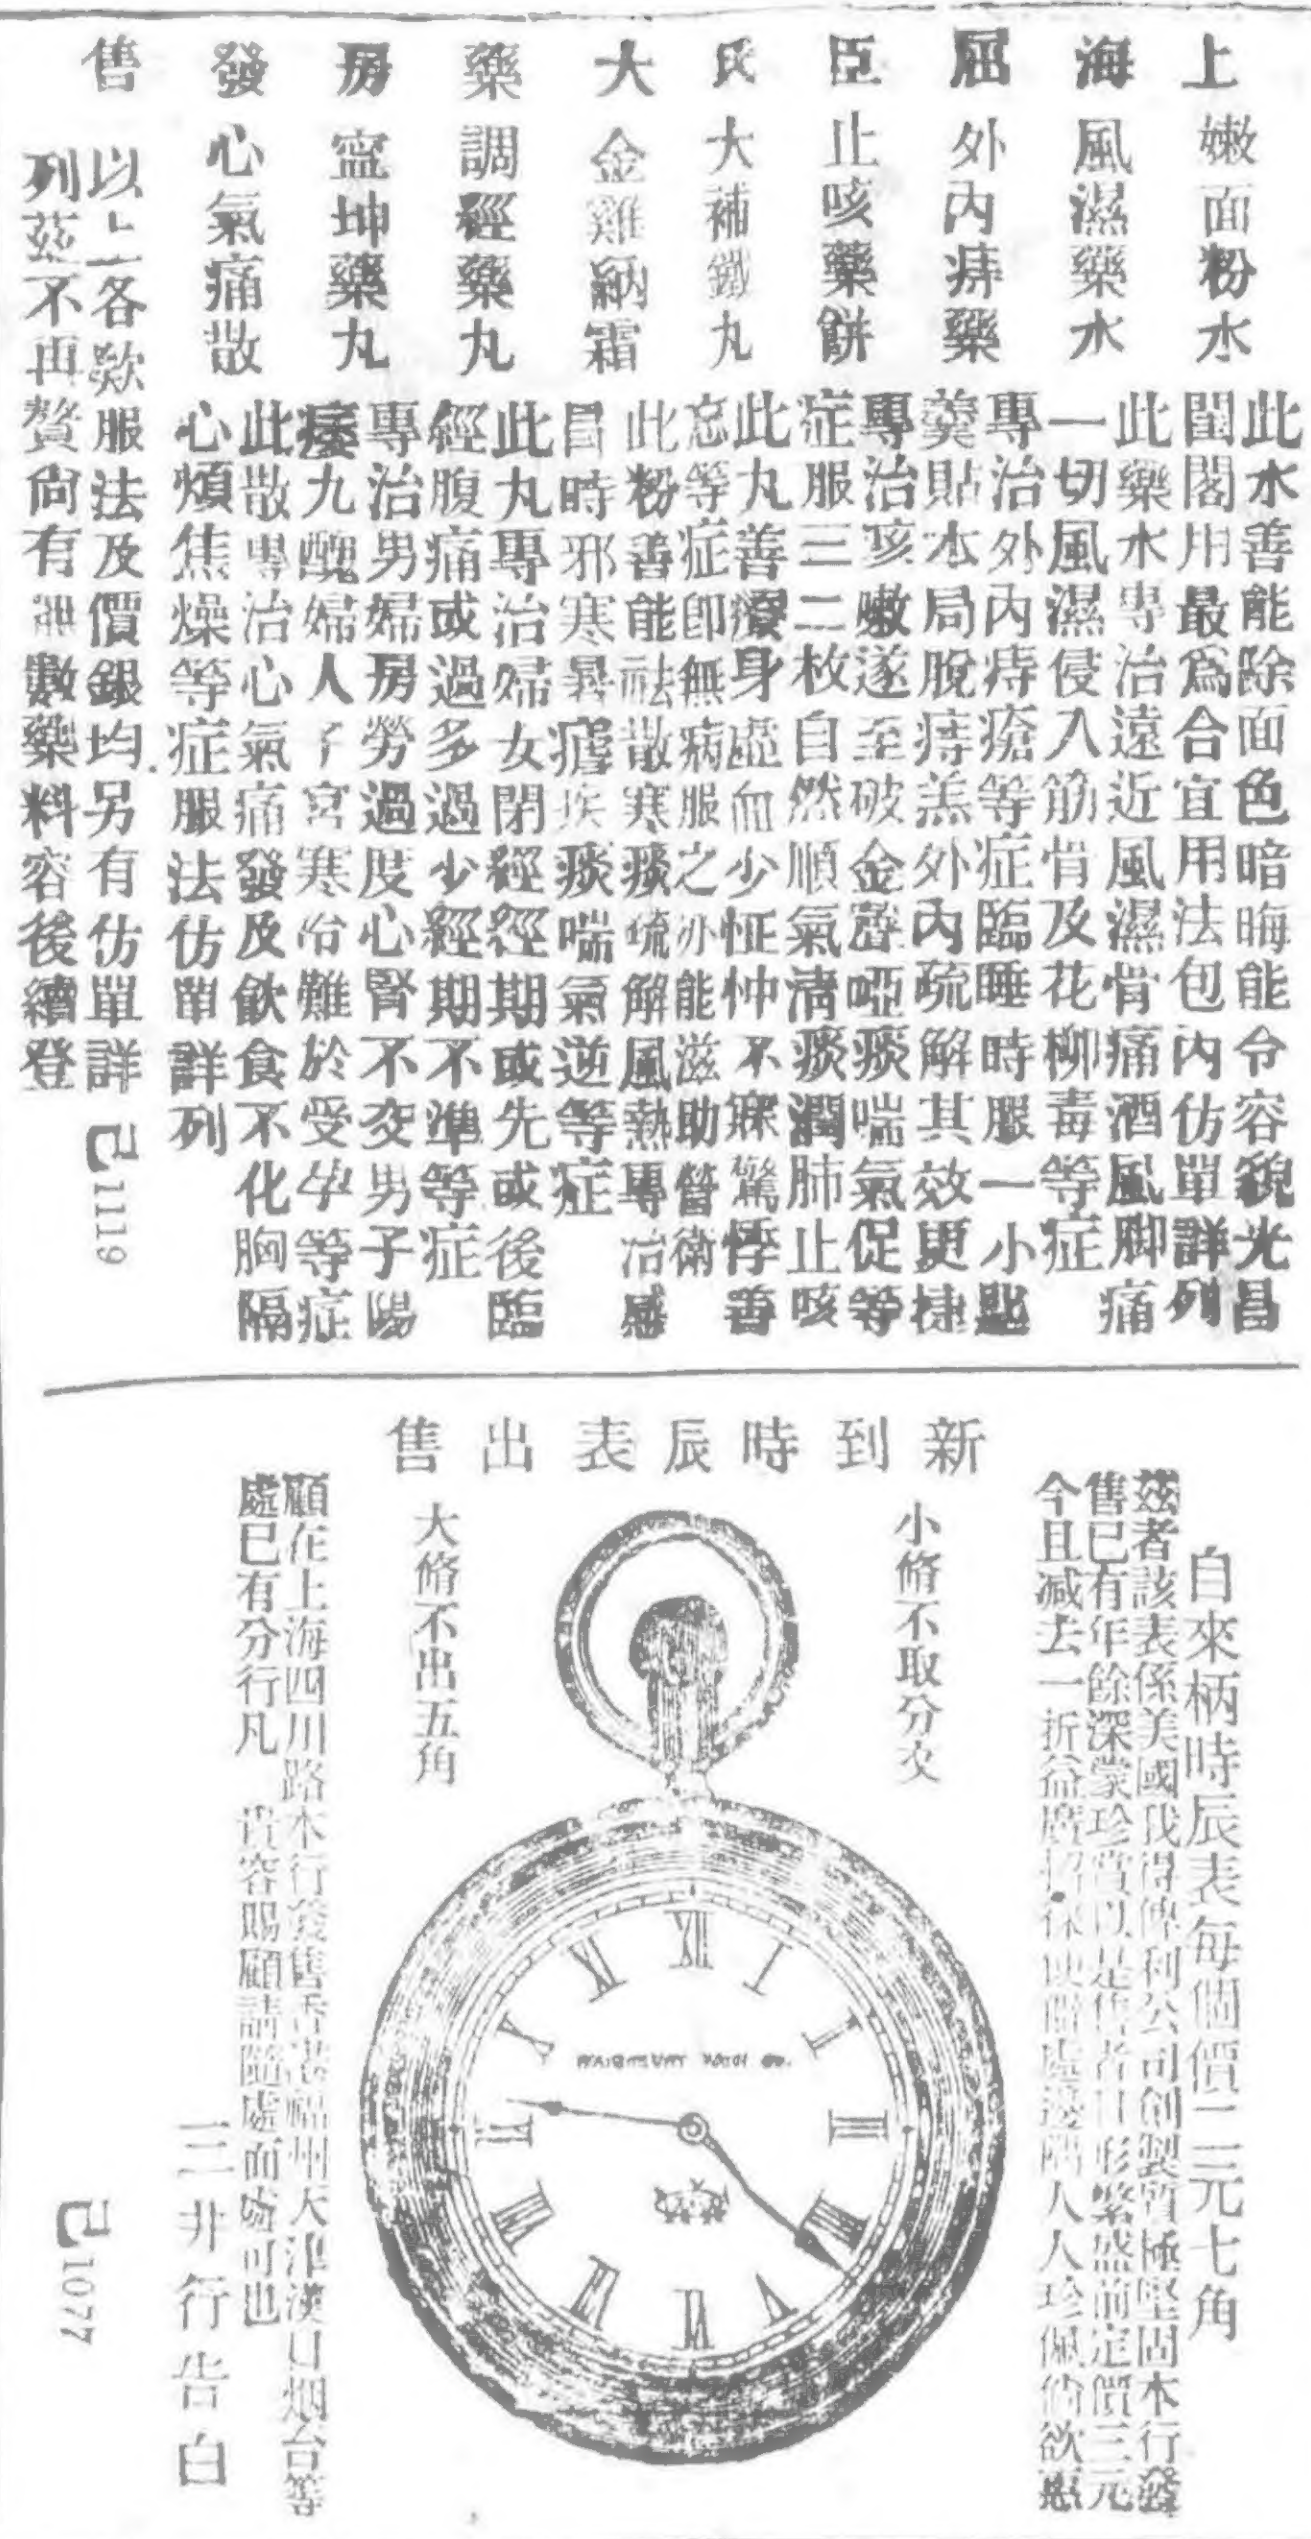 上海屈臣氏大藥房發售
嫩面粉水
此水善能除面色暗晦能令容貌光昌
閨閣用最為合宜用法包內仿單詳列
風濕藥水
此藥水專治遠近風濕骨痛酒風脚痛
一切風濕侵入筋骨及花柳毒等症
外內痔藥
專治外內痔瘡等症臨睡時服一小匙
羮貼本局脫痔羔外內疏解其效更捷
止咳藥餅
專治咳嗽遂至破金聲啞痰喘氣促等
症服三二枚自然順氣清痰潤肺止咳
大補鐵丸
此丸善療身虛血少怔忡不寐驚悸善
忘等症卽無病服之亦能滋助營衛
金雞納霜
此粉善能祛散寒痰疏解風熱專治感
冒時邪寒暑瘧疾痰喘氣逆等症
調經藥丸
此丸專治婦女閉經經期或先或後臨
經腹痛或過多過少經期不準等症
寗坤藥丸
專治男婦房勞過度心腎不交男子陽
痿九醜婦人子宮寒冷難於受孕等症
心氣痛散
此散專治心氣痛發及飲食不化胸隔
心煩焦燥等症服法仿單詳列
以上各欵服法及價銀均另有仿單詳
列茲不再贅尙有無數藥料容後續登
己1119
新到時辰表出售
自來柄時辰表每個價二元七角
茲者該表係美國我得啤利公司創製質極堅固本行發
售已有年餘深蒙珍賞以是售者日形繁盛前定價三元
今且减去一折益廣招徠使僻處遐陬人人珍佩倘欲惠
小脩不取分文
大脩不出五角
WATERBURY WATCH CO.
顧在上海四川路本行發售香港福州天津漢口烟台等
處已有分行凡 貴客賜顧請隨處面酌可也
三井行告白
己1077